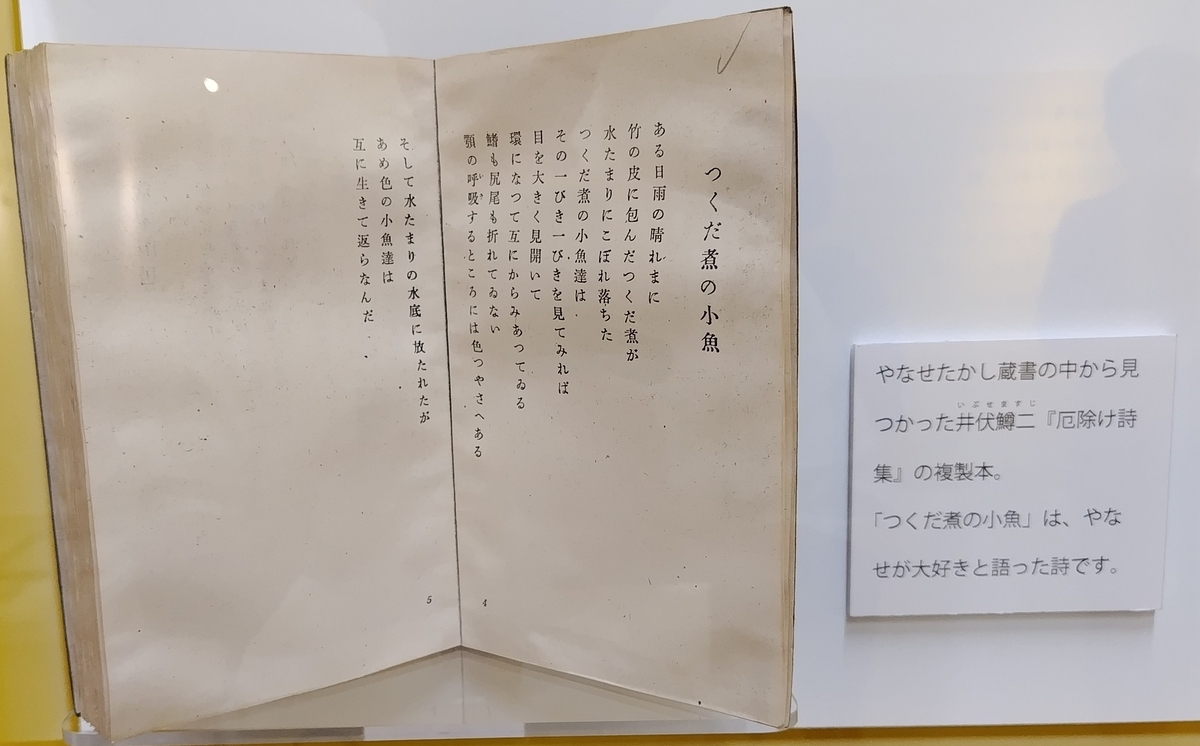 つくだ煮の小魚
ある日雨の晴れまに
竹の皮に包んだつくだ煮が
水たまりにこぼれ落ちた
つくだ煮の小魚達は
その一ぴき一ぴきを見てみれば
目を大きく見開いて
環になつて互にからみあつてゐる
鰭も尻尾も折れてゐない
顎の呼吸するところには色つやさへある
いき
4
そして水たまりの水底に放たれたが
あめ色の小魚達は
互に生きて返らなんだ
5
やなせたかし蔵書の中から見
いぶせますじ
つかった井伏鱒二『厄除け詩
集』の複製本。
「つくだ煮の小魚」は、やな
せが大好きと語った詩です。